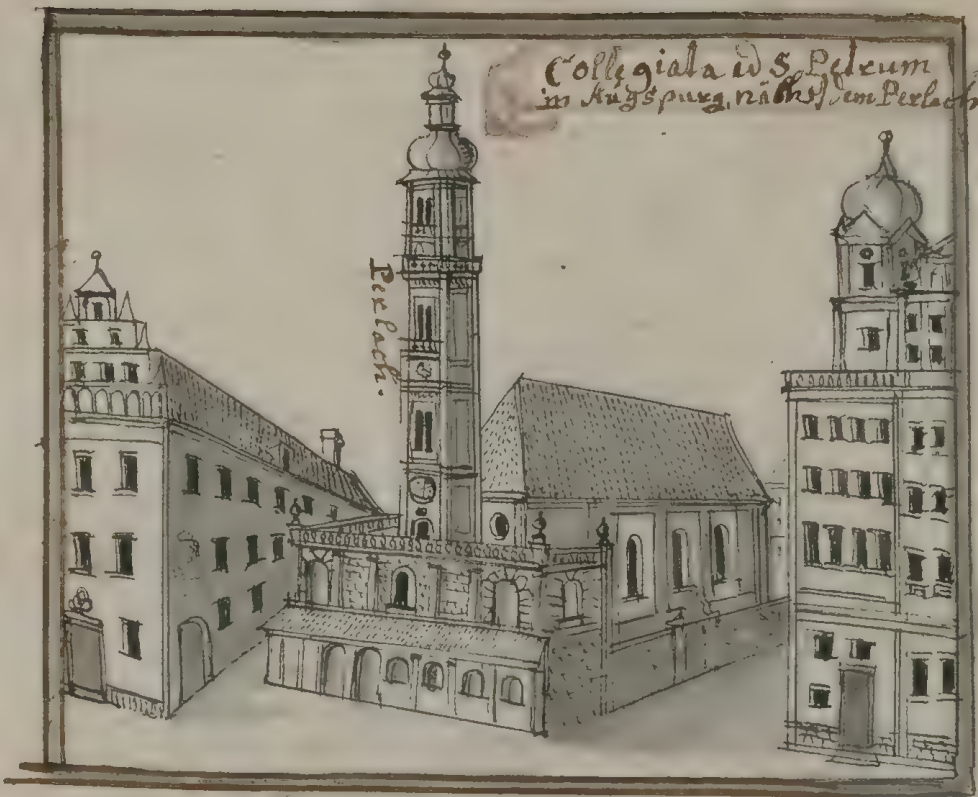 Collegiata ad S. Petrum
in Augspurg, nächst dem Perlach
Perlach.